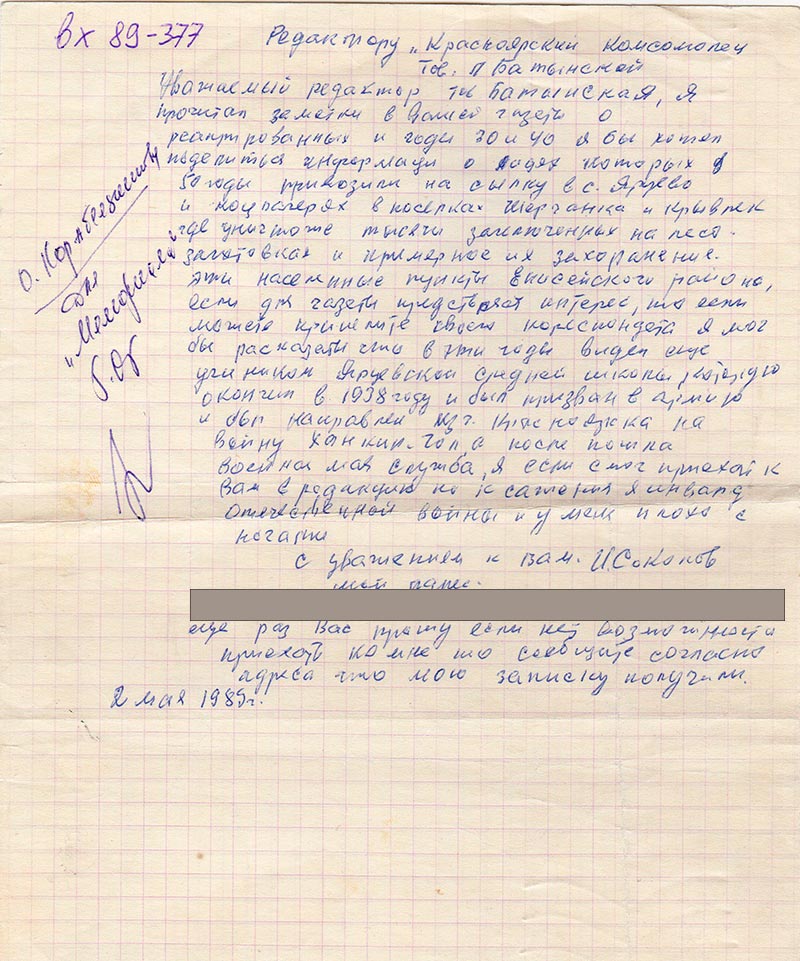 вх 89-377
Редактору „Красноярский Комсомолец
Тов. Л Батынской
Уважаемый редактор тк Батынская, я
прочитал заметки в Вашей газете о
репрированных и годы 30 и 40 я бы хотел
поделиться информаци о лицах которых в
50 годы привозили на сылку в с. Ярцево
и концлагерях в поселках Шерчанка и Крывляк
где уничтоже тысячи заключенных на лесо-
заготовках и примерное их захоранение.
эти населнные пункты Енисейского района,
если для газеты представяет интерес, то если
можете пришлите своего кореспондета я мог
бы расказать что в эти годы видел еще
учеником Ярцевской средней школы, которую
окончил в 1938 году и был призван в армию
и был направлен из г. Красноярска на
войну Халкин-Гол а после пошла
военная моя служба, я если смог приехать к
Вам в редакцию но к сажения я инвалд
отечественной войны и у меня плохо с
ногами
с уважением к Вам. И.Соколов
мой
еще раз Вас прошу если нет возможности
приехать ко мне то сообщите согласно
адреса что мою записку получили.
2 мая 1989г.
О.
для
„Мемориала"